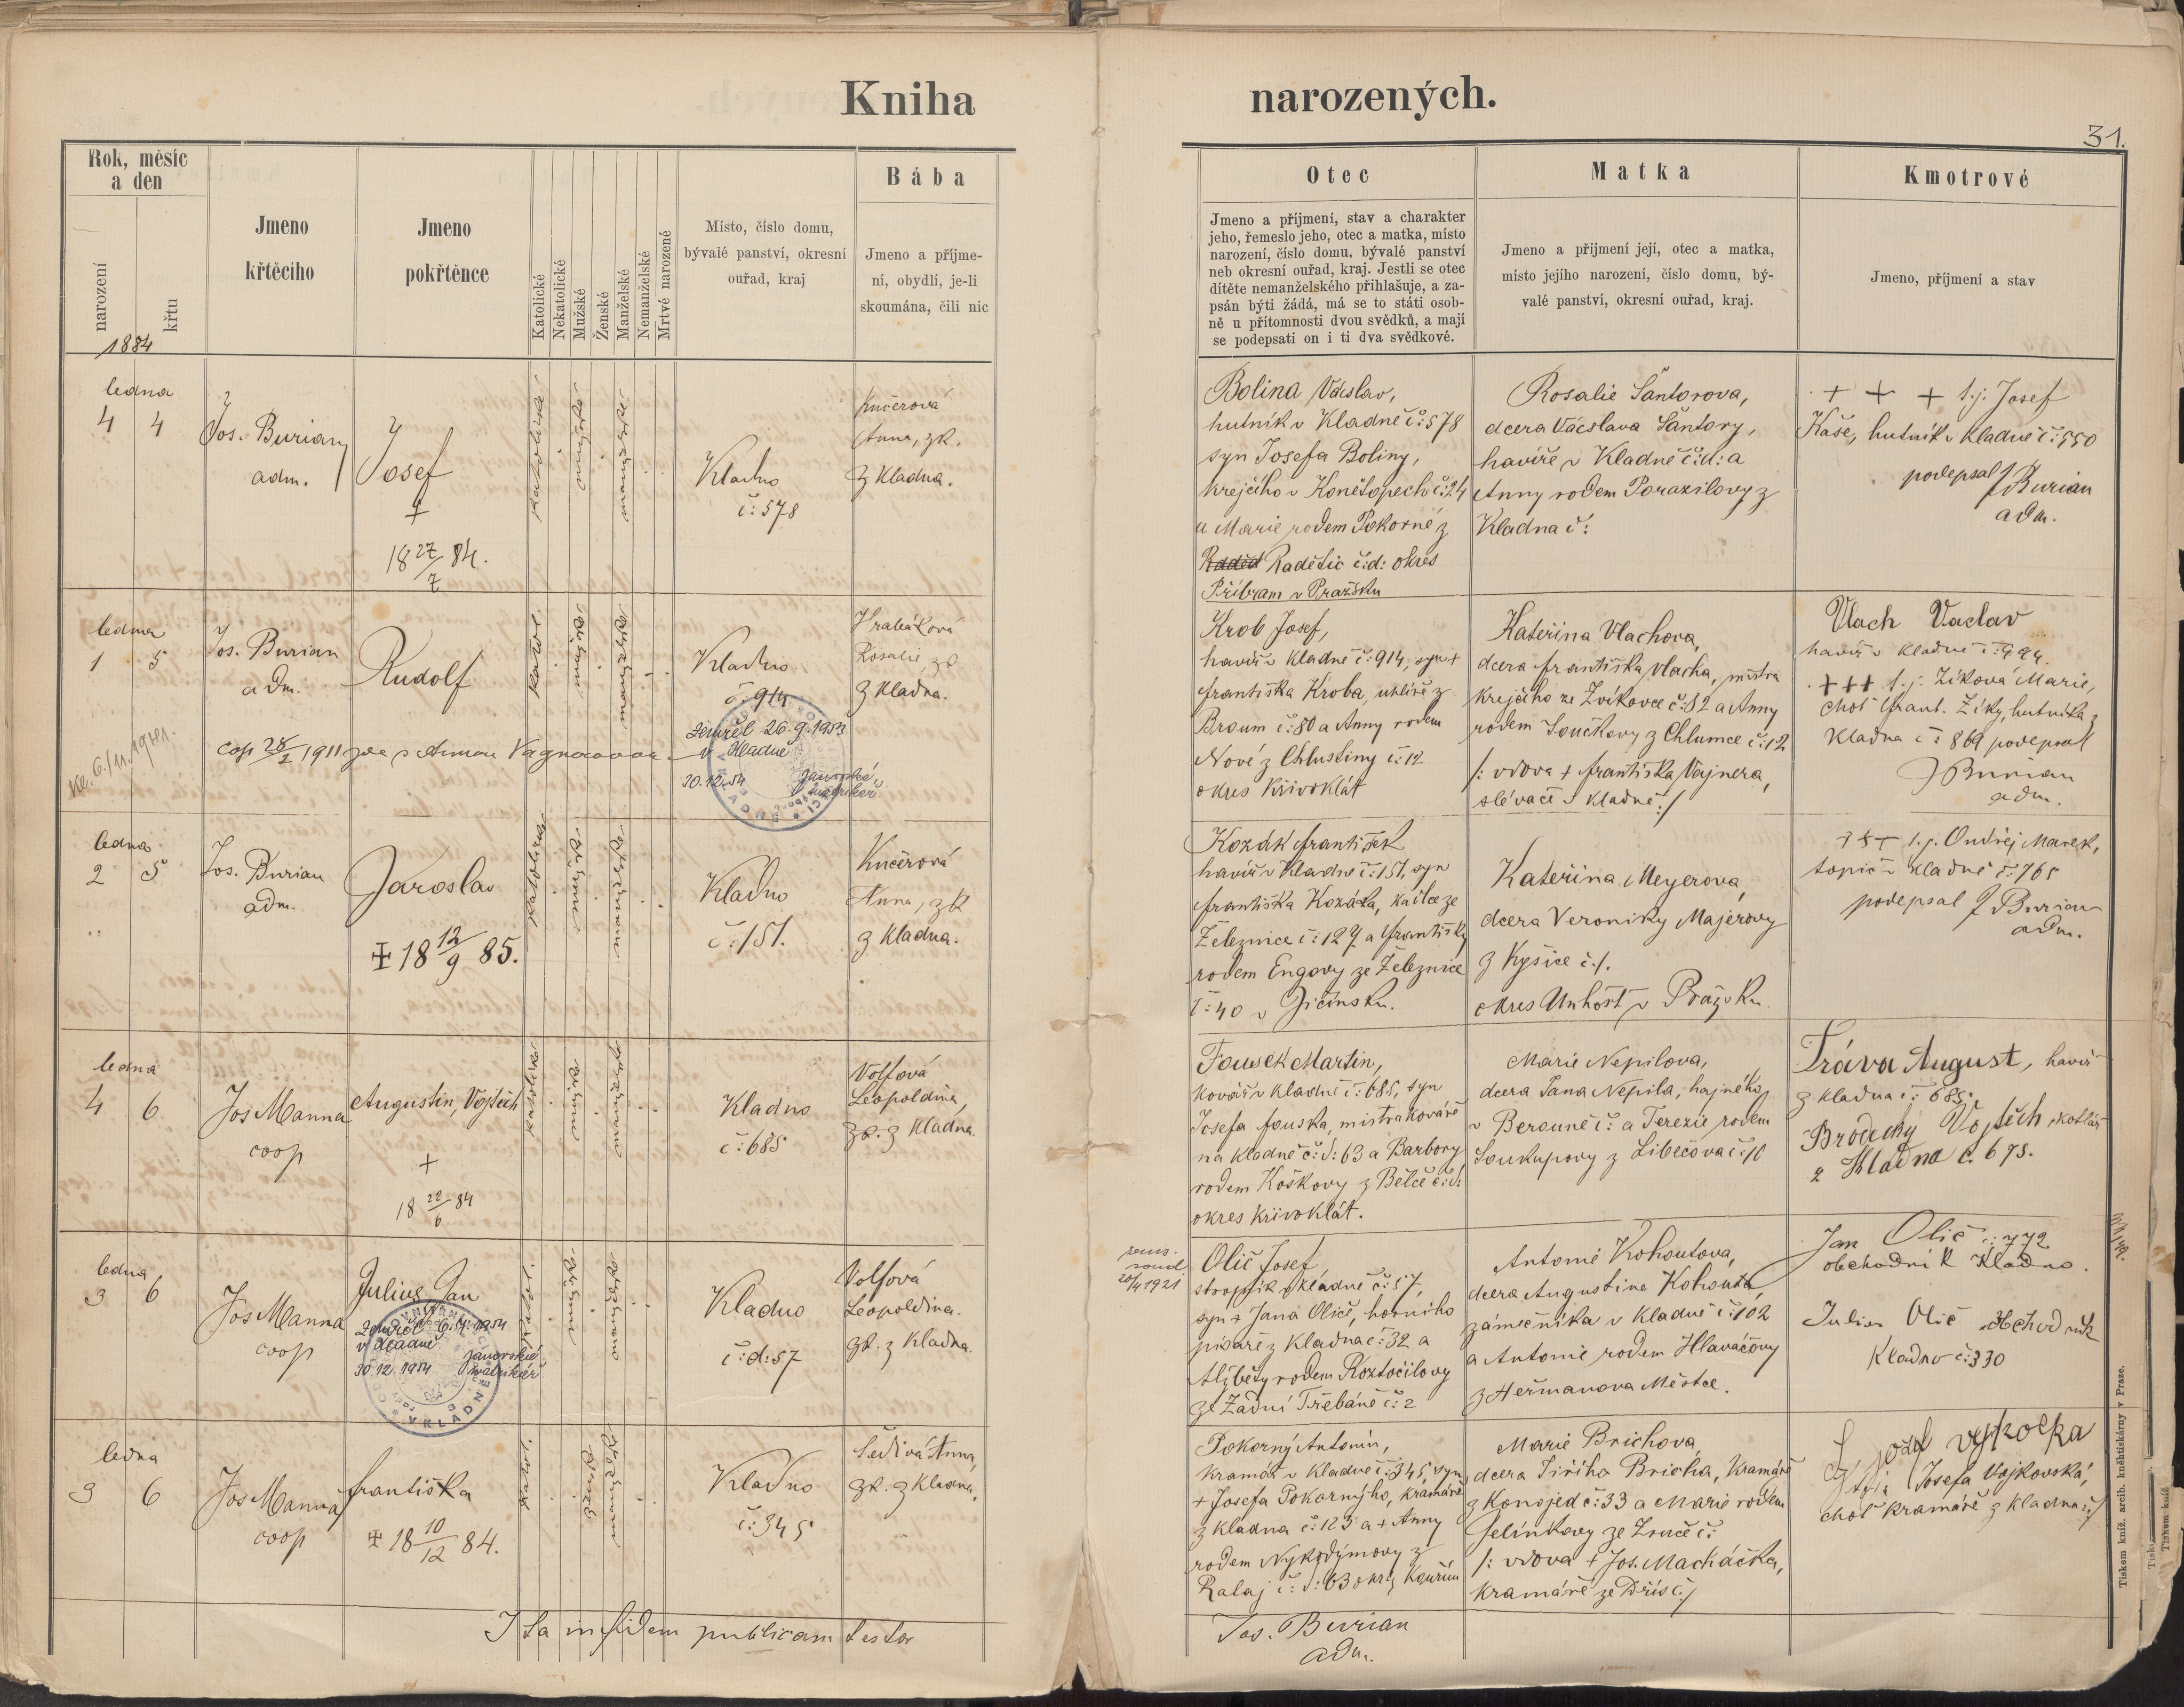 Kniha
narozených.
31.
Rok, měsíc
a den
narození
křtu
1884
Jmeno
křtěcího
Jmeno
pokřtěnce
Katolické
Nekatolické
Mužské
Ženské
Manželské
Nemanželské
Mrtvé narozené
Místo, číslo domu,
bývalé panství, okresní
ouřad, kraj
Bába
Jmeno a příjme-
ní, obydlí, je-li
skoumána, čili nic
Otec
Jmeno a příjmení, stav a charakter
jeho, řemeslo jeho, otec a matka, místo
narození, číslo domu, bývalé panství
neb okresní ouřad, kraj. Jestli se otec
dítěte nemanželského přihlašuje, a za-
psán býti žádá, má se to státi osob-
ně u přítomnosti dvou svědků, a mají
se podepsati on i ti dva svědkové.
Matka
Jmeno a přijmení její, otec a matka,
místo jejího narození, číslo domu, bý-
valé panství, okresní ouřad, kraj.
Kmotrové
Jmeno, příjmení a stav
ledna
4 4
Jos. Burian
adm.
Josef
+
18 27/7 84.
katolické
mužské
manželské
Kladno
č: 578
Kučerová
Anna, zk.
z Kladna.
Bolina Václav,
hutník v Kladně č: 578
syn Josefa Boliny,
krejčího v Konětopech č: 24
a Marie rodem Pokorné z
Raděd Radětic č:d: okres
Příbram v Pražsku
Rosalie Šantorova,
dcera Václava Šantory,
havíře v Kladně č:d: a
Anny rodem Porazilovy z
Kladna č:
+ + + t.j. Josef
Kaše, hutník v Kladně č: 550
podepsal J Burian
adm.
ledna
1 5
Jos. Burian
adm.
Rudolf
katol.
Kladno
č: 914
Hrabáková
Rosalie, zk
z Kladna.
cop 28/2 1911 zde s Annou Vagnerovou
zemřel 26.9.1953
v Kladně
30.12.54
Krob Josef,
havíř v Kladně č: 914, syn +
Františka Kroba, uhlíře z
Broum č: 80 a Anny rodem
Nové z Chlustiny č: 12
okres Křivoklát
Kateřina Vlachova,
dcera Františka Vlacha, mistra
krejčího ze Zvíkovce č: 82 a Anny
rodem Součkovy z Chlumce č: 12
/: vdova + Františka Vajnera,
slévače v Kladně :/
Vlach Vaclav
havíř v Kladně č: 994.
+++ t.j. Zíkova Marie,
choť Frant. Zíky, hutníka z
Kladna č: 869 podepsal
J Burian
adm.
ledna
2 5
Jos. Burian
adm.
Jaroslav
+ 18 12/9 85.
Kladno
č: 151.
Kučerová
Anna, zk
z Kladna.
Kozák František
havíř v Kladně č: 151, syn
Františka Kozáka, ze
Železnice č: 127 a Františky
rodem Engovy ze Železnice
č: 40 v Jičínsku.
Kateřina Meyerova,
dcera Veroniky Majerovy
z Kyšice č./.
okres Unhošt v Pražsku.
+++ t.j. Ondřej Marek,
topič v Kladně č: 765
podepsal J Burian
adm.
ledna
4 6
Jos Manna
coop
Augustin, Vojtěch
+
18 22/6 84
Kladno
č: 685
Volfová
Leopoldina,
zk. z Kladna.
Fousek Martin,
kovář v Kladně č: 685, syn
Josefa Fouska, mistra kováře
na Kladně č: d: 63 a Barbory
rodem Koškovy z Bělče č: d:
okres Křivoklát.
Marie Nepilova,
dcera Jana Nepila, hajného
v Berouně č: a Terezie rodem
Soukupovy z Libečova č: 10
Tráva August, havíř
z Kladna č: 685.
Brodecký Vojtěch, kotlář
z Kladna č. 675.
ledna
3 6
Jos Manna
coop
Julius Jan
zemřel 6.4.1954
v Kladně
30.12.1954
V KLADNĚ
Kladno
č: d: 57
Volfová
Leopoldina.
zk. z Kladna.
20/4 1921
Olič Josef
strojník v Kladně č: 57,
syn + Jana Oliče, horního
písaře z Kladna č: 32 a
Alžběty rodem Roztočilovy
ze Zadní Třebáně č: 2
Antonie Kohoutova,
dcera Augustina Kohouta,
zámečníka v Kladně č: 102
a Antonie rodem Hlaváčovy
z Heřmanova Městce.
Jan Olič č: 772
obchodník Kladno.
Julius Olič obchodník
Kladno č: 330
ledna
3 6
Jos Manna
coop
Františka
+ 18 10/12 84.
katol.
Kladno
č: 345
Šedivá Anna,
zk. z Kladna.
Pokorný Antonín,
kramář v Kladně č: 345, syn
+ Josefa Pokorného, kramáře
z Kladna č: 123 a + Anny
rodem Nykodýmovy z
Rataj č: d: 63 okres Kouřim
Marie Brichova,
dcera Jiřího Bricha, kramáře
z Konojed č: 33 a Marie rodem
Jelínkovy ze Zruče č:
/: vdova + Jos. Macháčka,
kramáře ze Dřís č:/
Josefa Vojkovská,
choť kramáře z Kladna :/
Ita in fidem publicam testor
Jos. Burian
adm.
Tiskem kníž. arcib. knihtiskárny v Praze.